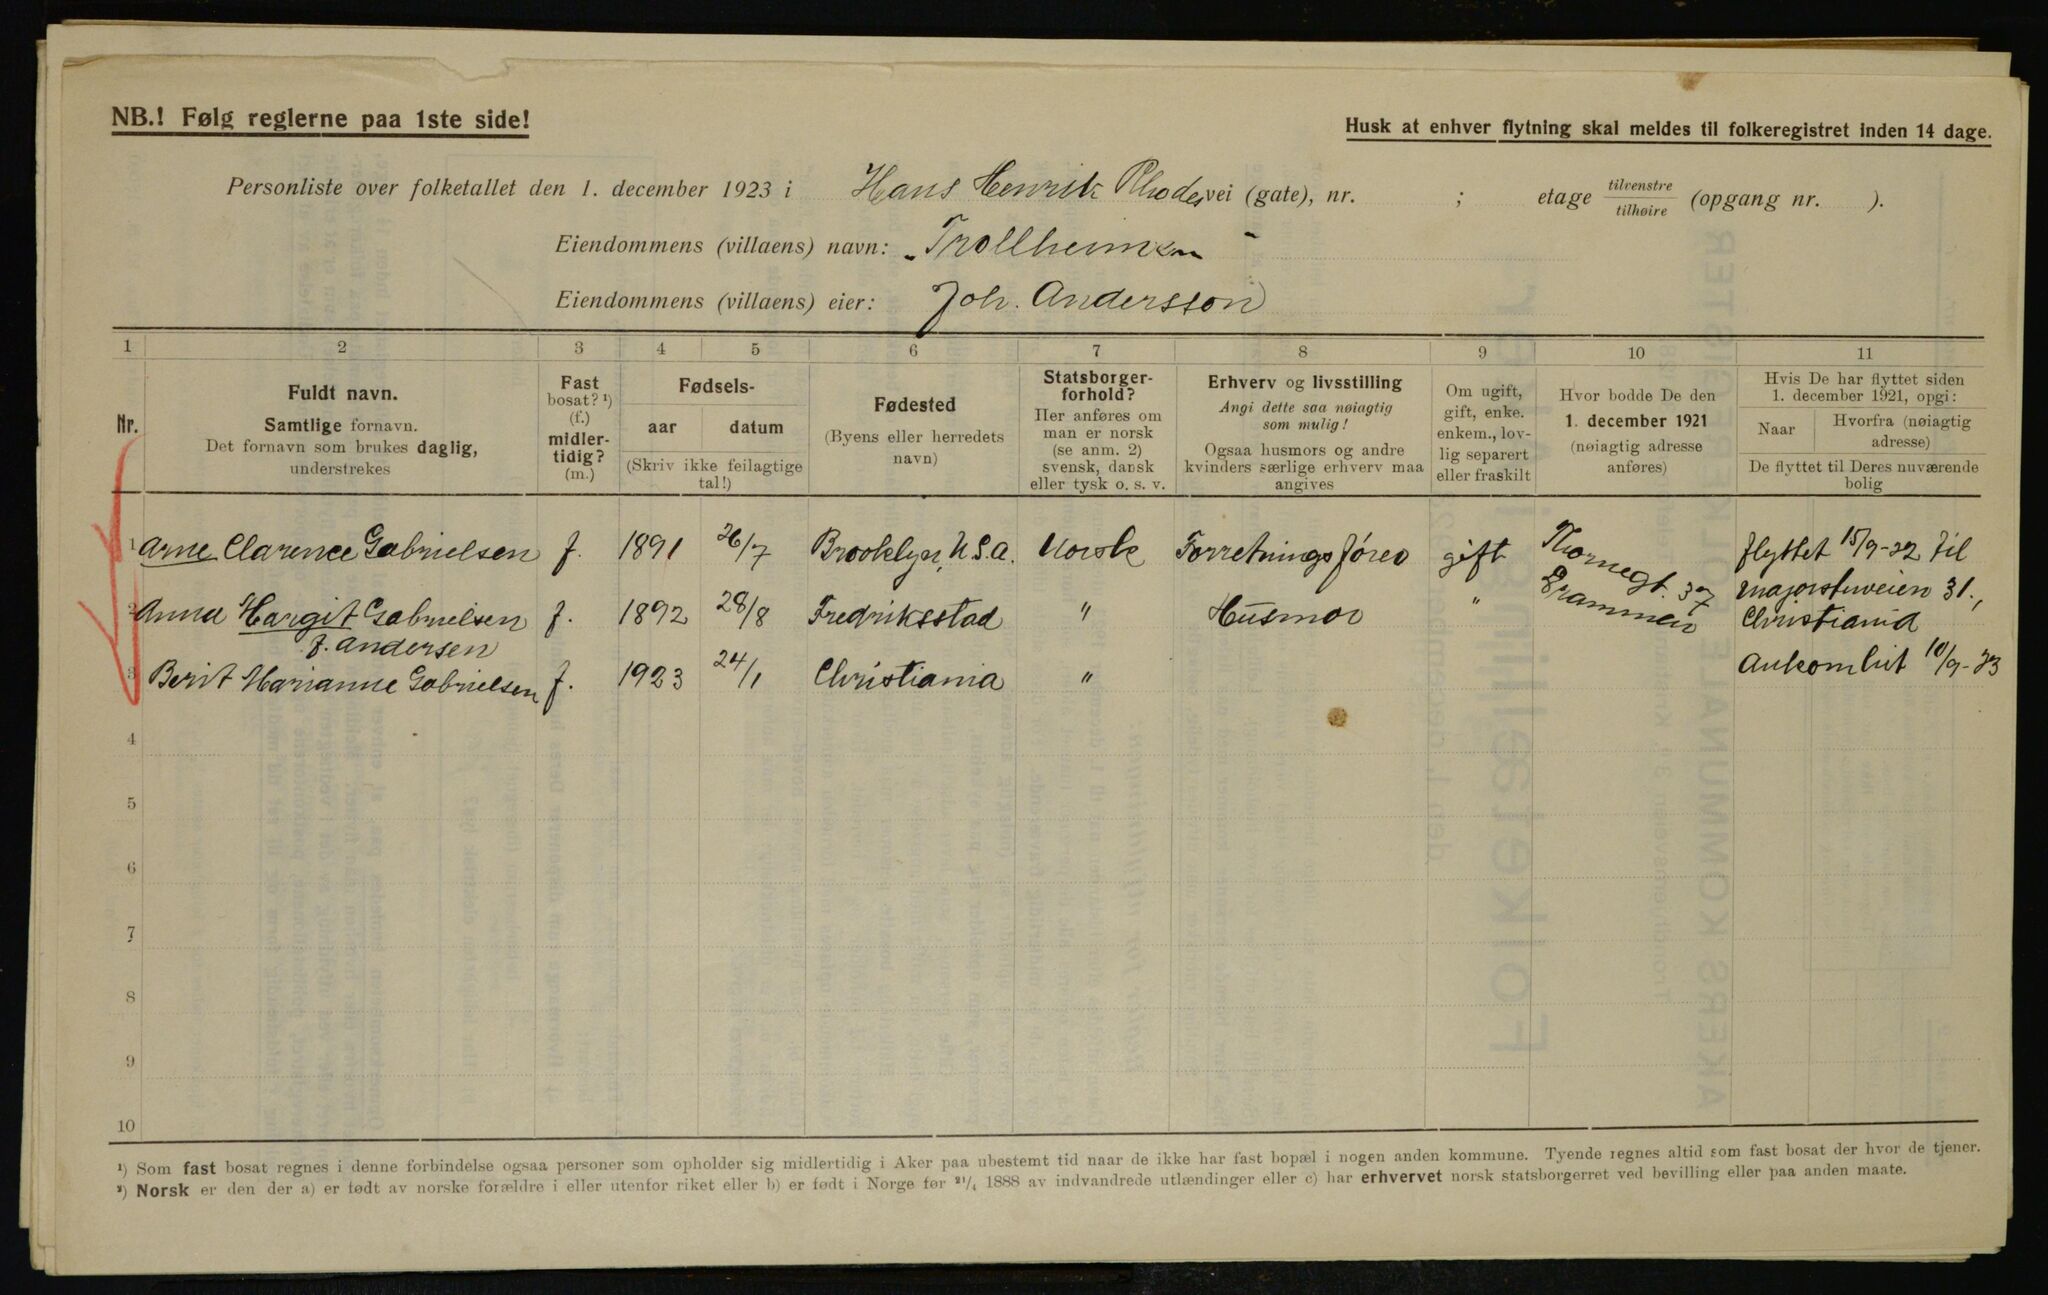 NB.! Følg reglerne paa 1ste side!
Husk at enhver flytning skal meldes til folkeregistret inden 14 dage.
Personliste over folketallet den 1. december 1923 i Hans Henrik Rhodes vei (gate), nr. ; etage tilvenstre/tilhøire (opgang nr. ).
Eiendommens (villaens) navn: „Trollheimen“
Eiendommens (villaens) eier: Joh. Andersson
1 2 3 4 5 6 7 8 9 10 11
Nr.
Fuldt navn.
Samtlige fornavn.
Det fornavn som brukes daglig,
understrekes
Fast
bosat? ¹)
(f.)
midler-
tidig?
(m.)
Fødsels-
aar datum
(Skriv ikke feilagtige
tal!)
Fødested
(Byens eller herredets
navn)
Statsborger-
forhold?
Her anføres om
man er norsk
(se anm. 2)
svensk, dansk
eller tysk o. s. v.
Erhverv og livsstilling
Angi dette saa nøiagtig
som mulig!
Ogsaa husmors og andre
kvinders særlige erhverv maa
angives
Om ugift,
gift, enke.
enkem., lov-
lig separert
eller fraskilt
Hvor bodde De den
1. december 1921
(nøiagtig adresse
anføres)
Hvis De har flyttet siden
1. december 1921, opgi:
Naar
Hvorfra (nøiagtig
adresse)
De flyttet til Deres nuværende
bolig
1 Arne Clarence Gabrielsen f. 1891 26/7 Brooklyn, U.S.A. Norsk Forretningsfører gift Thornegt. 37 Drammen flyttet 15/9-22 til
2 Anna Margit Gabrielsen f. 1892 28/8 Fredriksstad " Husmor " majorstuveien 31.,
f. Andersen
Christiania
3 Berit Marianne Gabrielsen f. 1923 24/1 Christiania " Ankomhit 10/9-23
4
5
6
7
8
9
10
¹) Som fast bosat regnes i denne forbindelse ogsaa personer som opholder sig midlertidig i Aker paa ubestemt tid naar de ikke har fast bopæl i nogen anden kommune. Tyende regnes altid som fast bosat der hvor de tjener.
²) Norsk er den der a) er født av norske forældre i eller utenfor riket eller b) er født i Norge før ²¹/₄ 1888 av indvandrede utlændinger eller c) har erhvervet norsk statsborgerret ved bevilling eller paa anden maate.